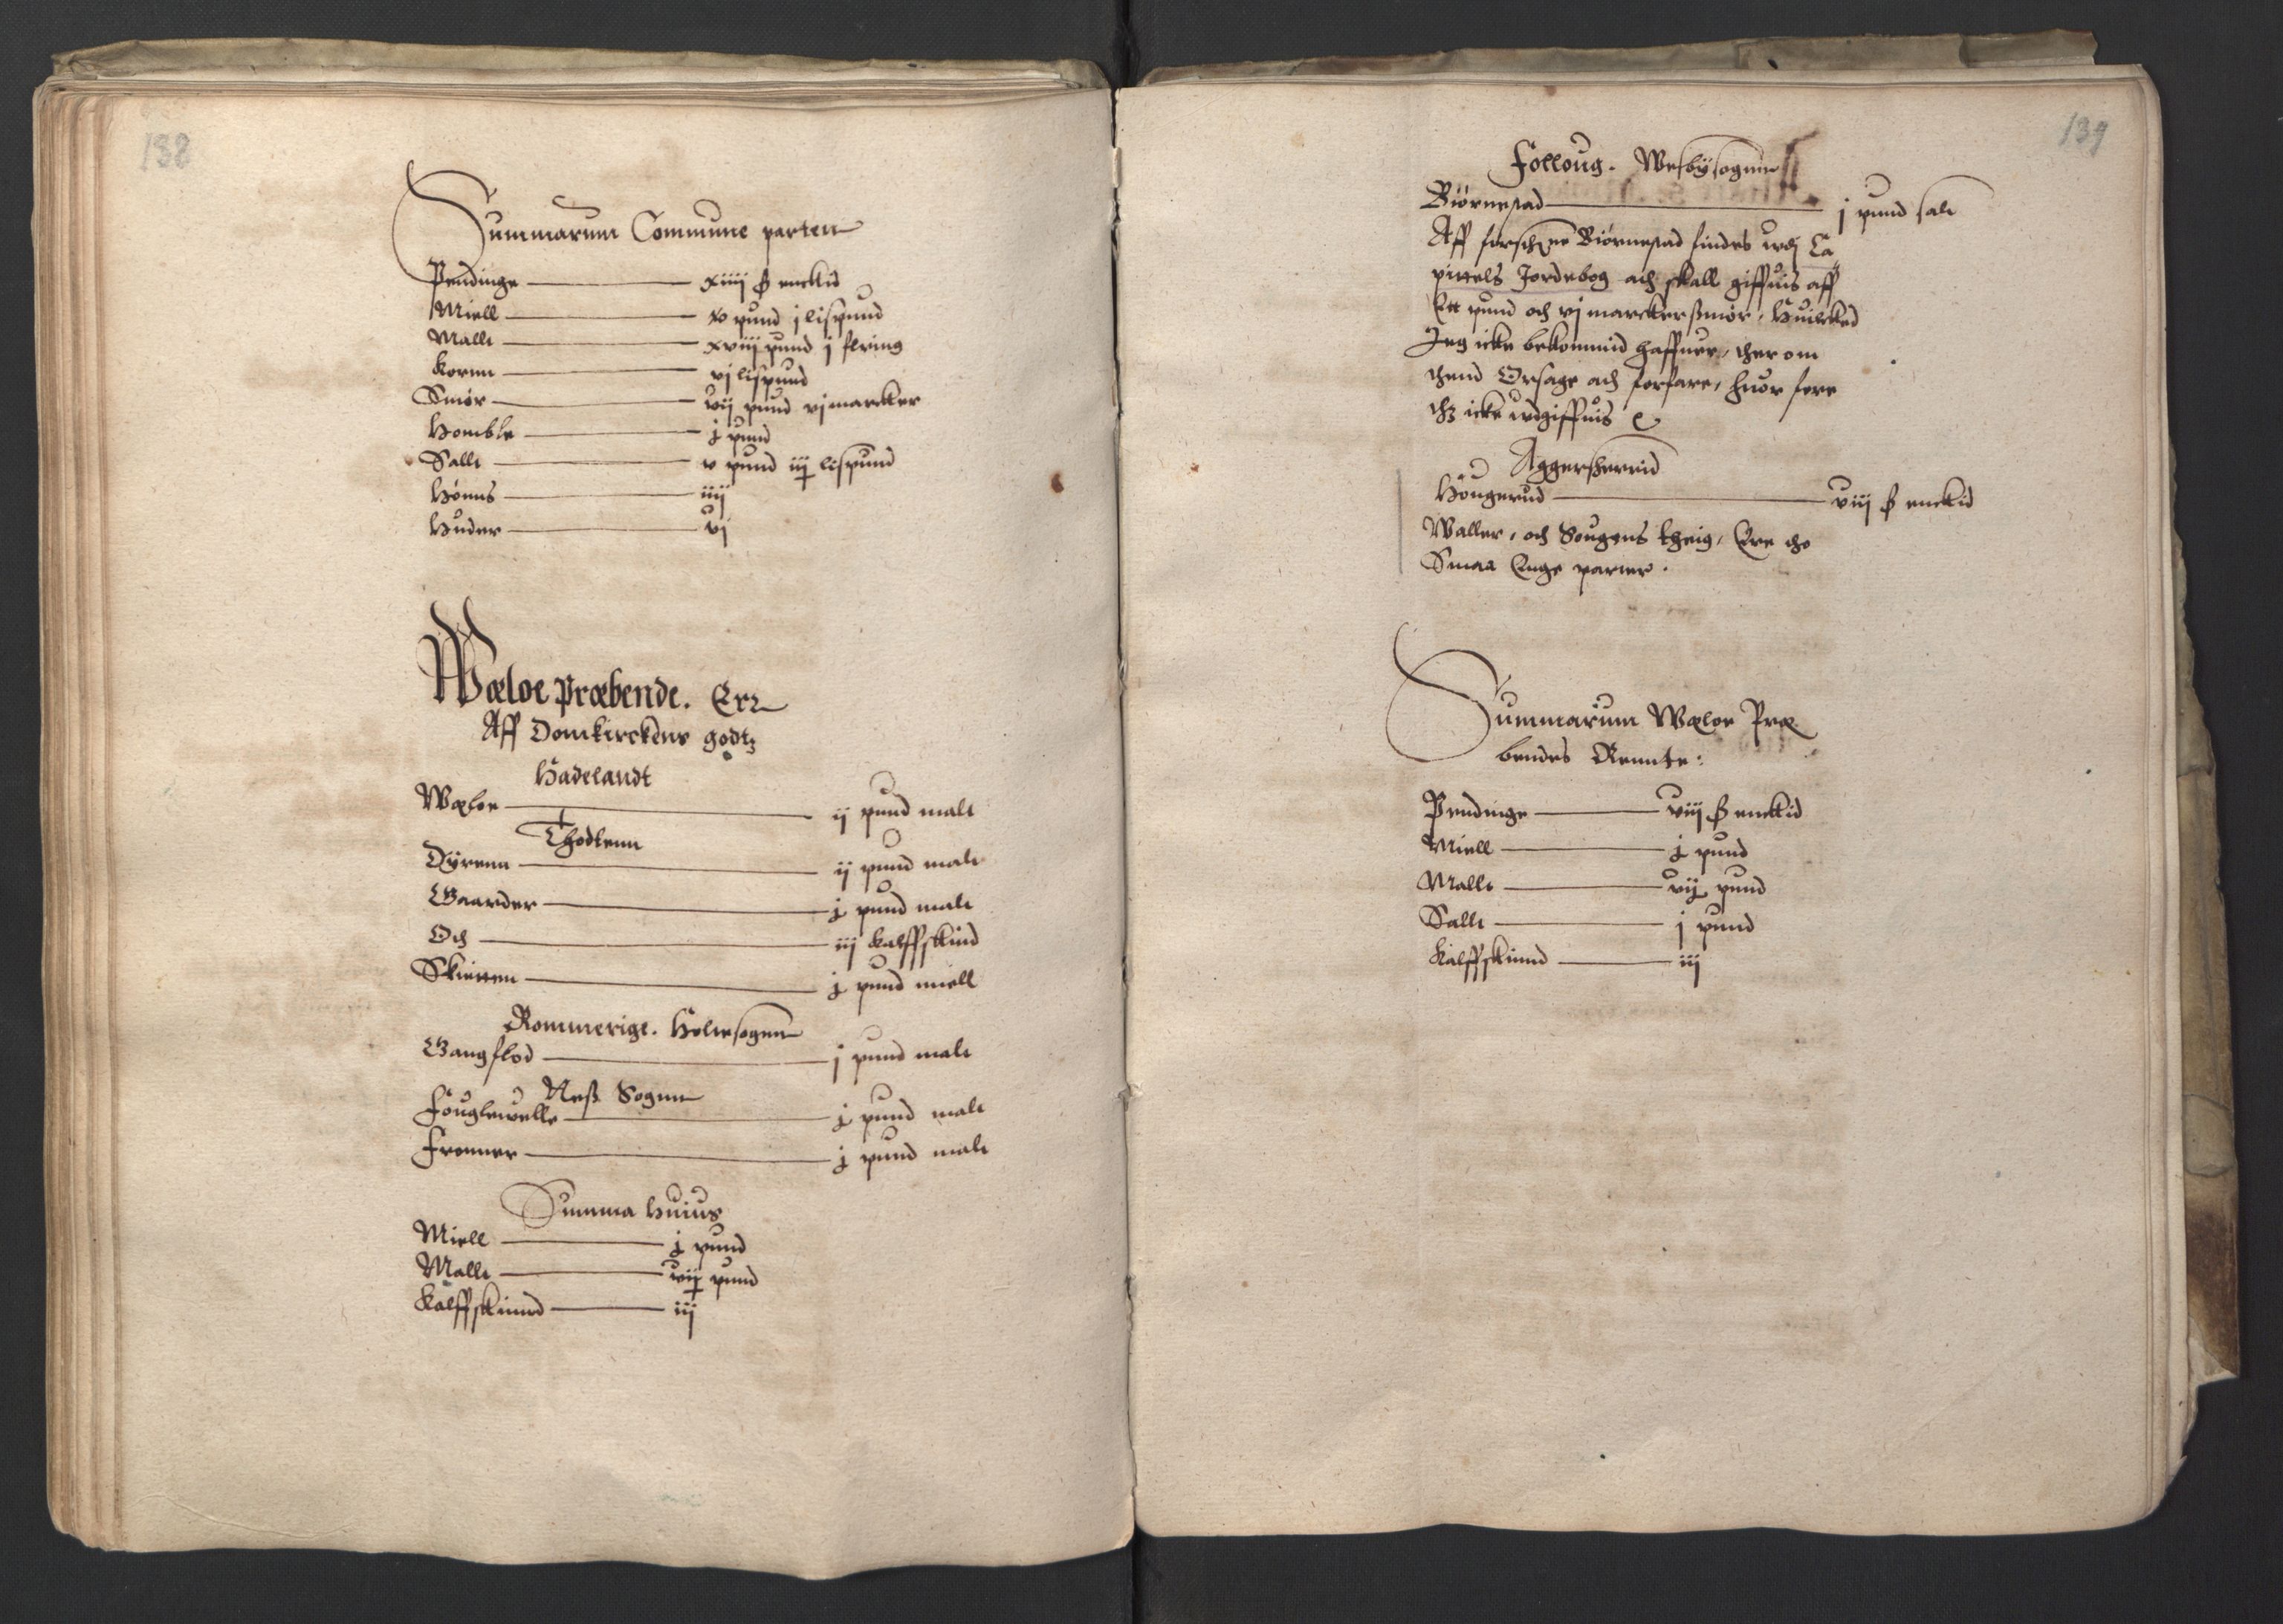 138
Summarum Commune parten
Pendinge — xiiij β enckid
Miell — xv pund j lispund
Mallt — xviij pund j fiering
Kornn — vj lispund
Smør — vij pund vj marcker
Homble — j pund
Sallt — v pund iij lispund
Hønns — iiij
Huder — vj
Wæloe Præbende. Err
Aff Domkirckens godtz
Hadelandt
Wæloe — ij pund malt
Thodtenn
Dÿrenn — ij pund malt
Gaarder — j pund malt
Och — iij kalffskind
Skiøtten — j pund miell
Rommerige. Holtesogenn
Gangflod — j pund malt
Neß Sognn
Fouglewelle — j pund malt
Frenner — j pund malt
Summa huius
Miell — j pund
Mallt — vij pund
Kalffskinnd — iij
139
Folloug. Wesbÿsognn
Biørnestad — j pund salt
Aff forschne Biørnestad findes wdj Ca
pittels Jordebog och skall giffuis aff
Ett pund och vj marcker smør, Huilcked
Jeg icke bekommid haffuer, ther om
thend Orsage och forfare, huor fore
thz icke wdgiffuis
Aggersherrid
Hougerud — viij β enckid
Waller, och Sougens theig, Ere tho
Smaa Enge parter.
Summarum Wæloe Præ
bendes Rennte:
Pendinge — viij β enckid
Miell — j pund
Mallt — vij pund
Sallt — j pund
Kalffskinnd — iij